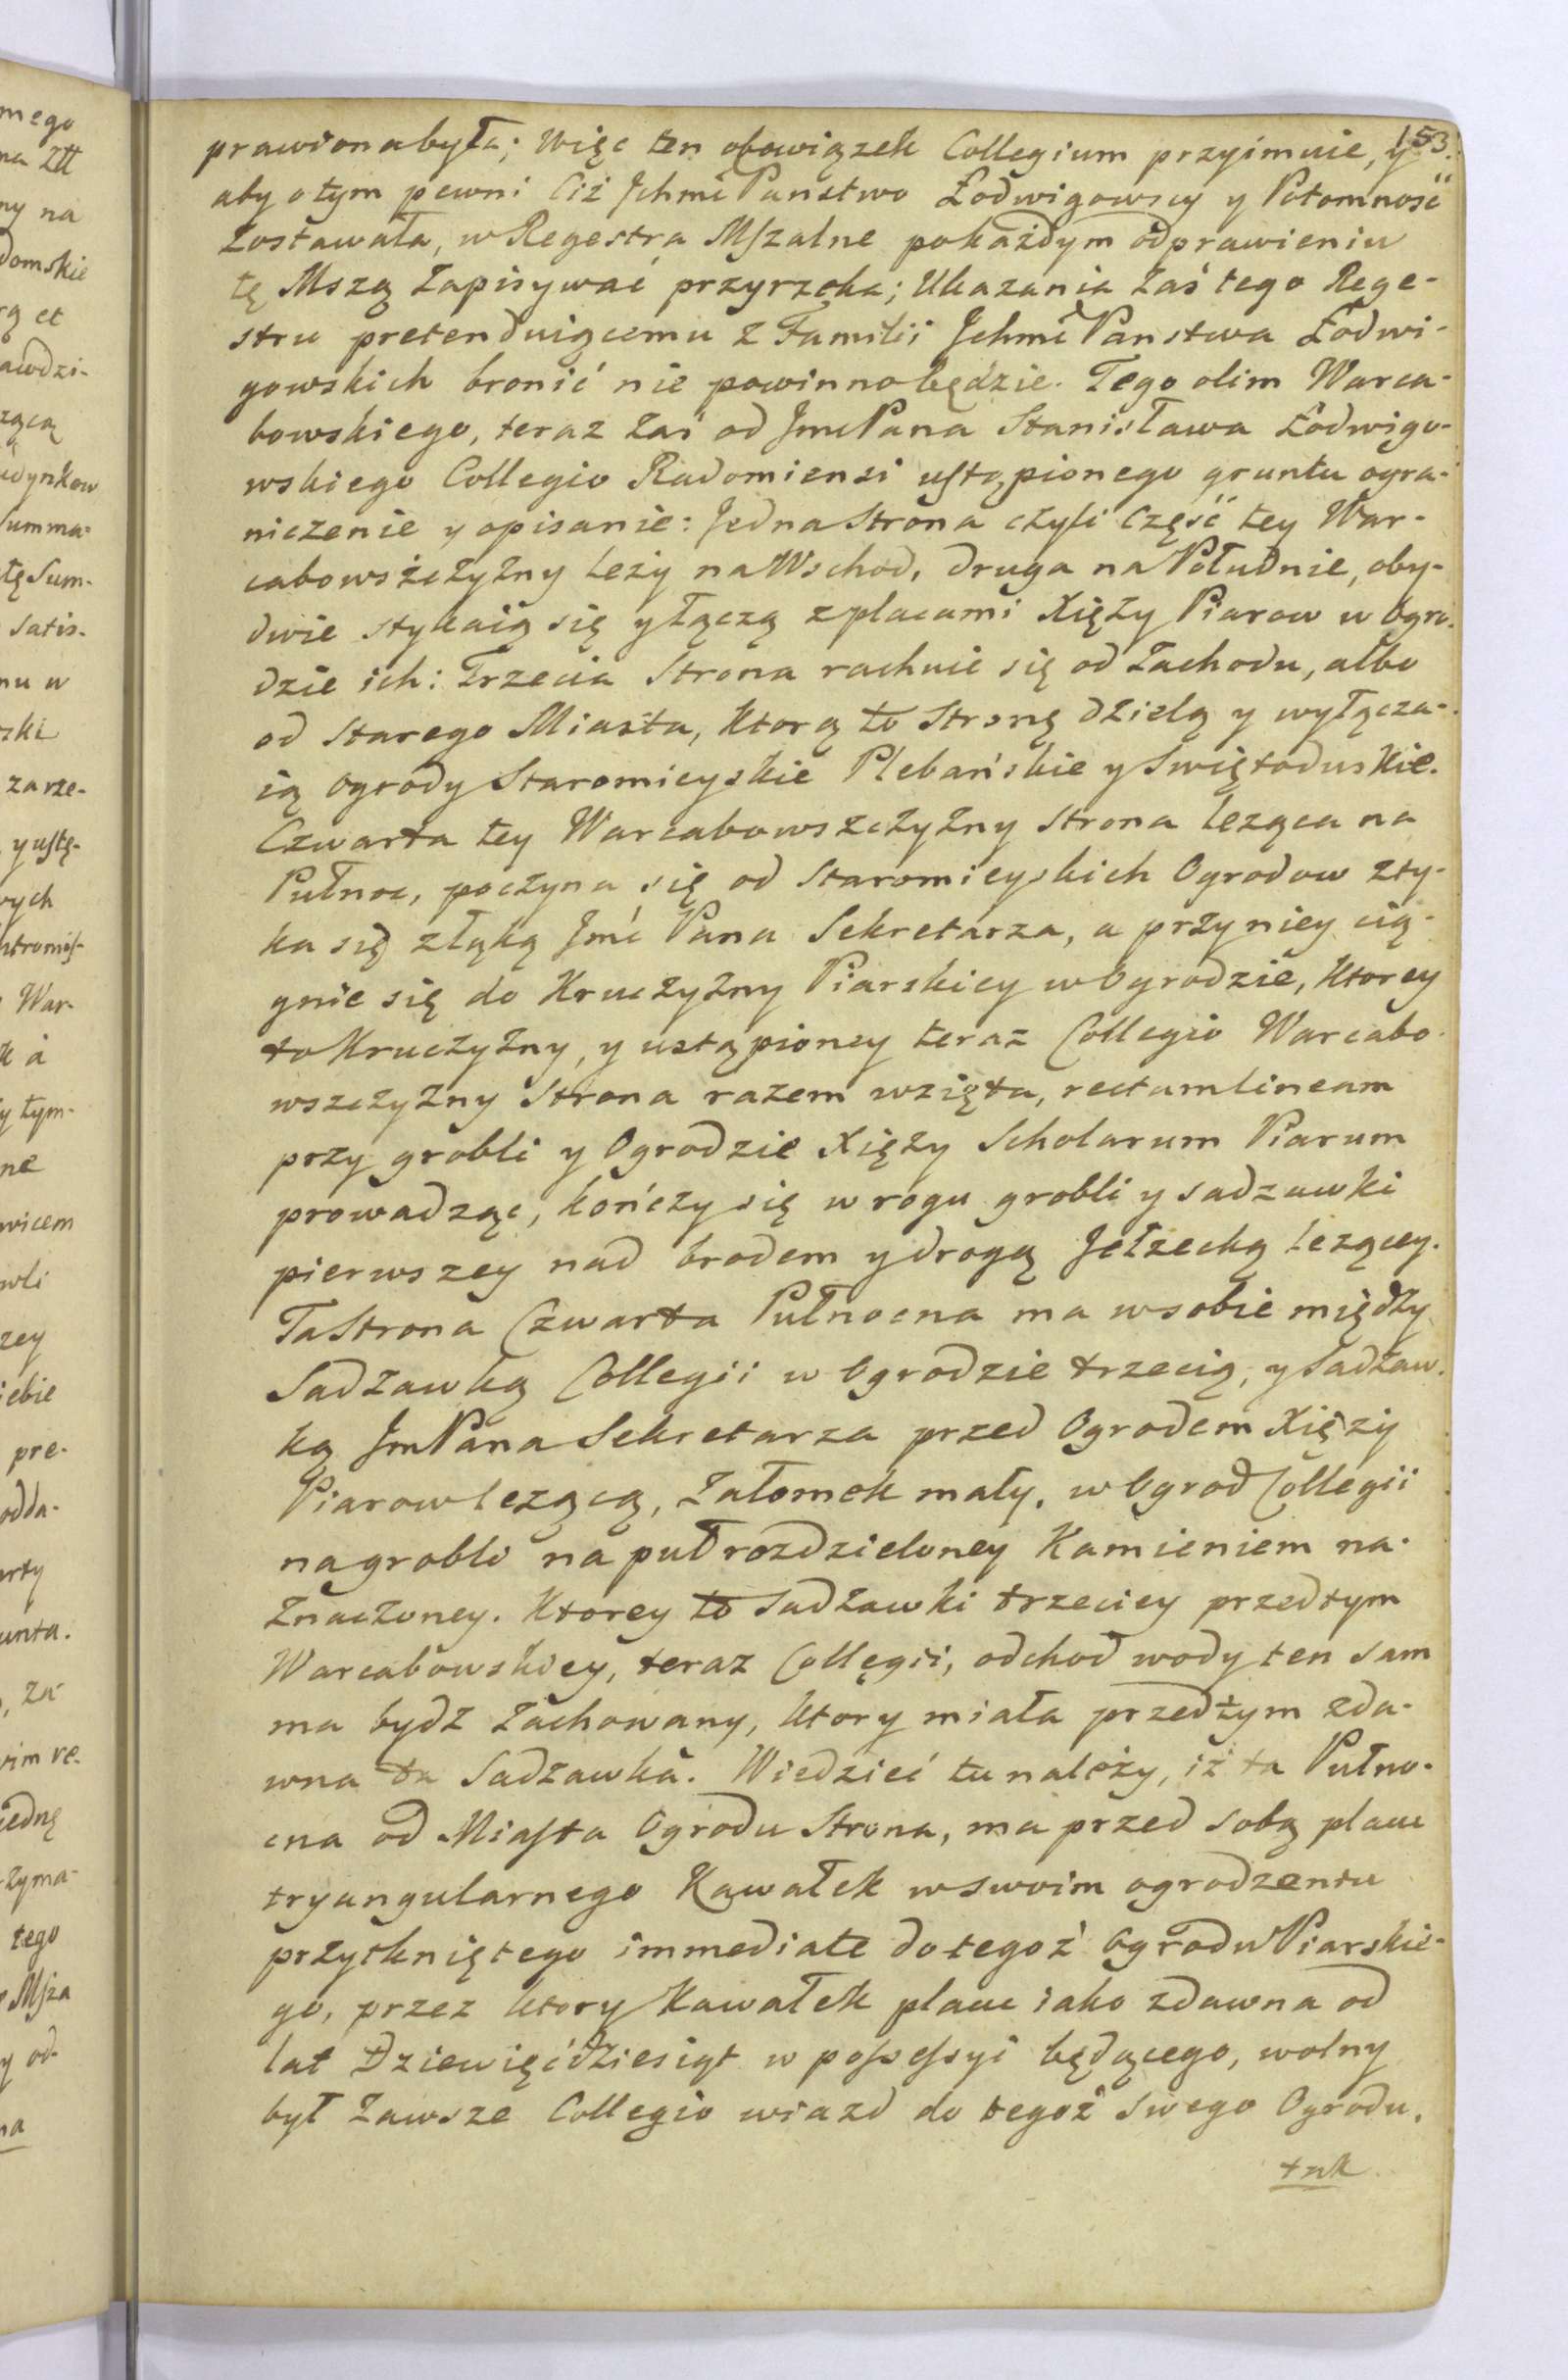 153.
prawiona była; Więc ten obowiązek Collegium przyimuie, y
aby o tym pewni Ciż Jchmć Państwo Łodwigowscy y Potomność
Zostawała, w Regestra Mszalne po każdym odprawieniu
tę Mszą Zapisywać przyrzeka; Ukazania Zaś tego Rege-
stru pretenduiącemu z Familii Jchmć Panstwa Łodwi-
gowskich bronić nie powinno będzie. Tego olim Warca-
bowskiego, teraz Zaś od Jmć Pana Stanisława Łodwigo-
wskiego Collegio Radomiensi ustąpionego gruntu ogra-
niczenie y opisanie: Jedna Strona czyli Część tey War-
cabowszczyzny leży na Wschod, druga na Południe, oby-
dwie stykaią się y łączą z placami Xięży Piarow w Ogro-
dzie ich: Trzecia Strona rachuie się od Zachodu, albo
od Starego Miasta, Ktorą to Stronę dzielą y wyłącza-
ią Ogrody Staromieyskie Plebańskie y Swiętoduskie.
Czwarta tey Warcabowszczyzny Strona leząca na
Pułnoc, poczyna się od Staromieyskich Ogrodow zty-
ka się z łąką Jmć Pana Sekretarza, a przy niey cią-
gnie się do Kruczyzny Piarskiey w Ogrodzie, Ktorey
to Kruczyzny, y ustąpioney teraz Collegio Warcabo-
wszczyzny Strona razem wzięta, rectam lineam
przy grobli y Ogrodzie Xięży Scholarum Piarum
prowadząc, kończy się w rogu grobli y sadzawki
pierwszey nad brodem y drogą Jełzecką lezącey.
Ta Strona Czwarta Pułnocna ma w sobie między
Sadzawką Collegii w Ogrodzie trzecią, y sadzaw-
ką Jm Pana Sekretarza przed Ogrodem Xięży
Piarow lezącą, Załomek mały, w Ogrod Collegii
na grobli na puł rozdzieloney Kamieniem na-
Znaczoney. Ktorey to Sadzawki trzeciey przedtym
Warcabowskiey, teraz Collegii, odchod wody ten sam
ma bydz Zachowany, Ktory miała przedtym zda-
wna ta Sadzawka. Wiedzieć tu należy, iż ta Pułno-
cna od Miasta Ogrodu Strona, ma przed sobą placu
tryangularnego Kawałek w swoim ogrodzeniu
przytkniętego immediate do tegoż Ogrodu Piarskie-
go, przez ktory Kawałek placu iako zdawna od
lat Dziewięćdziesiąt w possessyi będącego, wolny
był Zawsze Collegio wiazd do tegoż swego Ogrodu,
tak